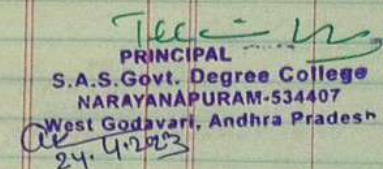 PRINCIPAL
S.A.S.Govt. Degree College
NARAYANAPURAM-534407
West Godavari, Andhra Pradesh
24.4.2023